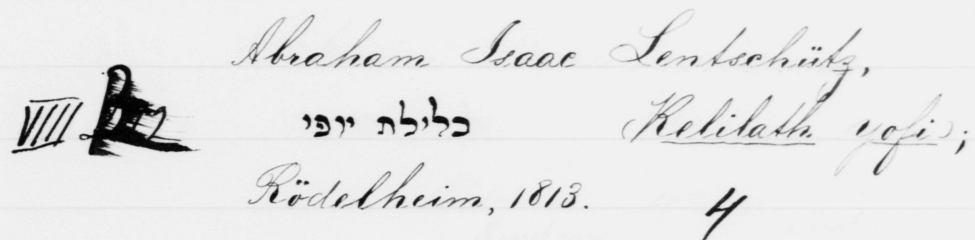 Abraham Isaac Lentschütz,
VIII כלילת יופי (Kelilath yofi);
Rödelheim, 1813. 4